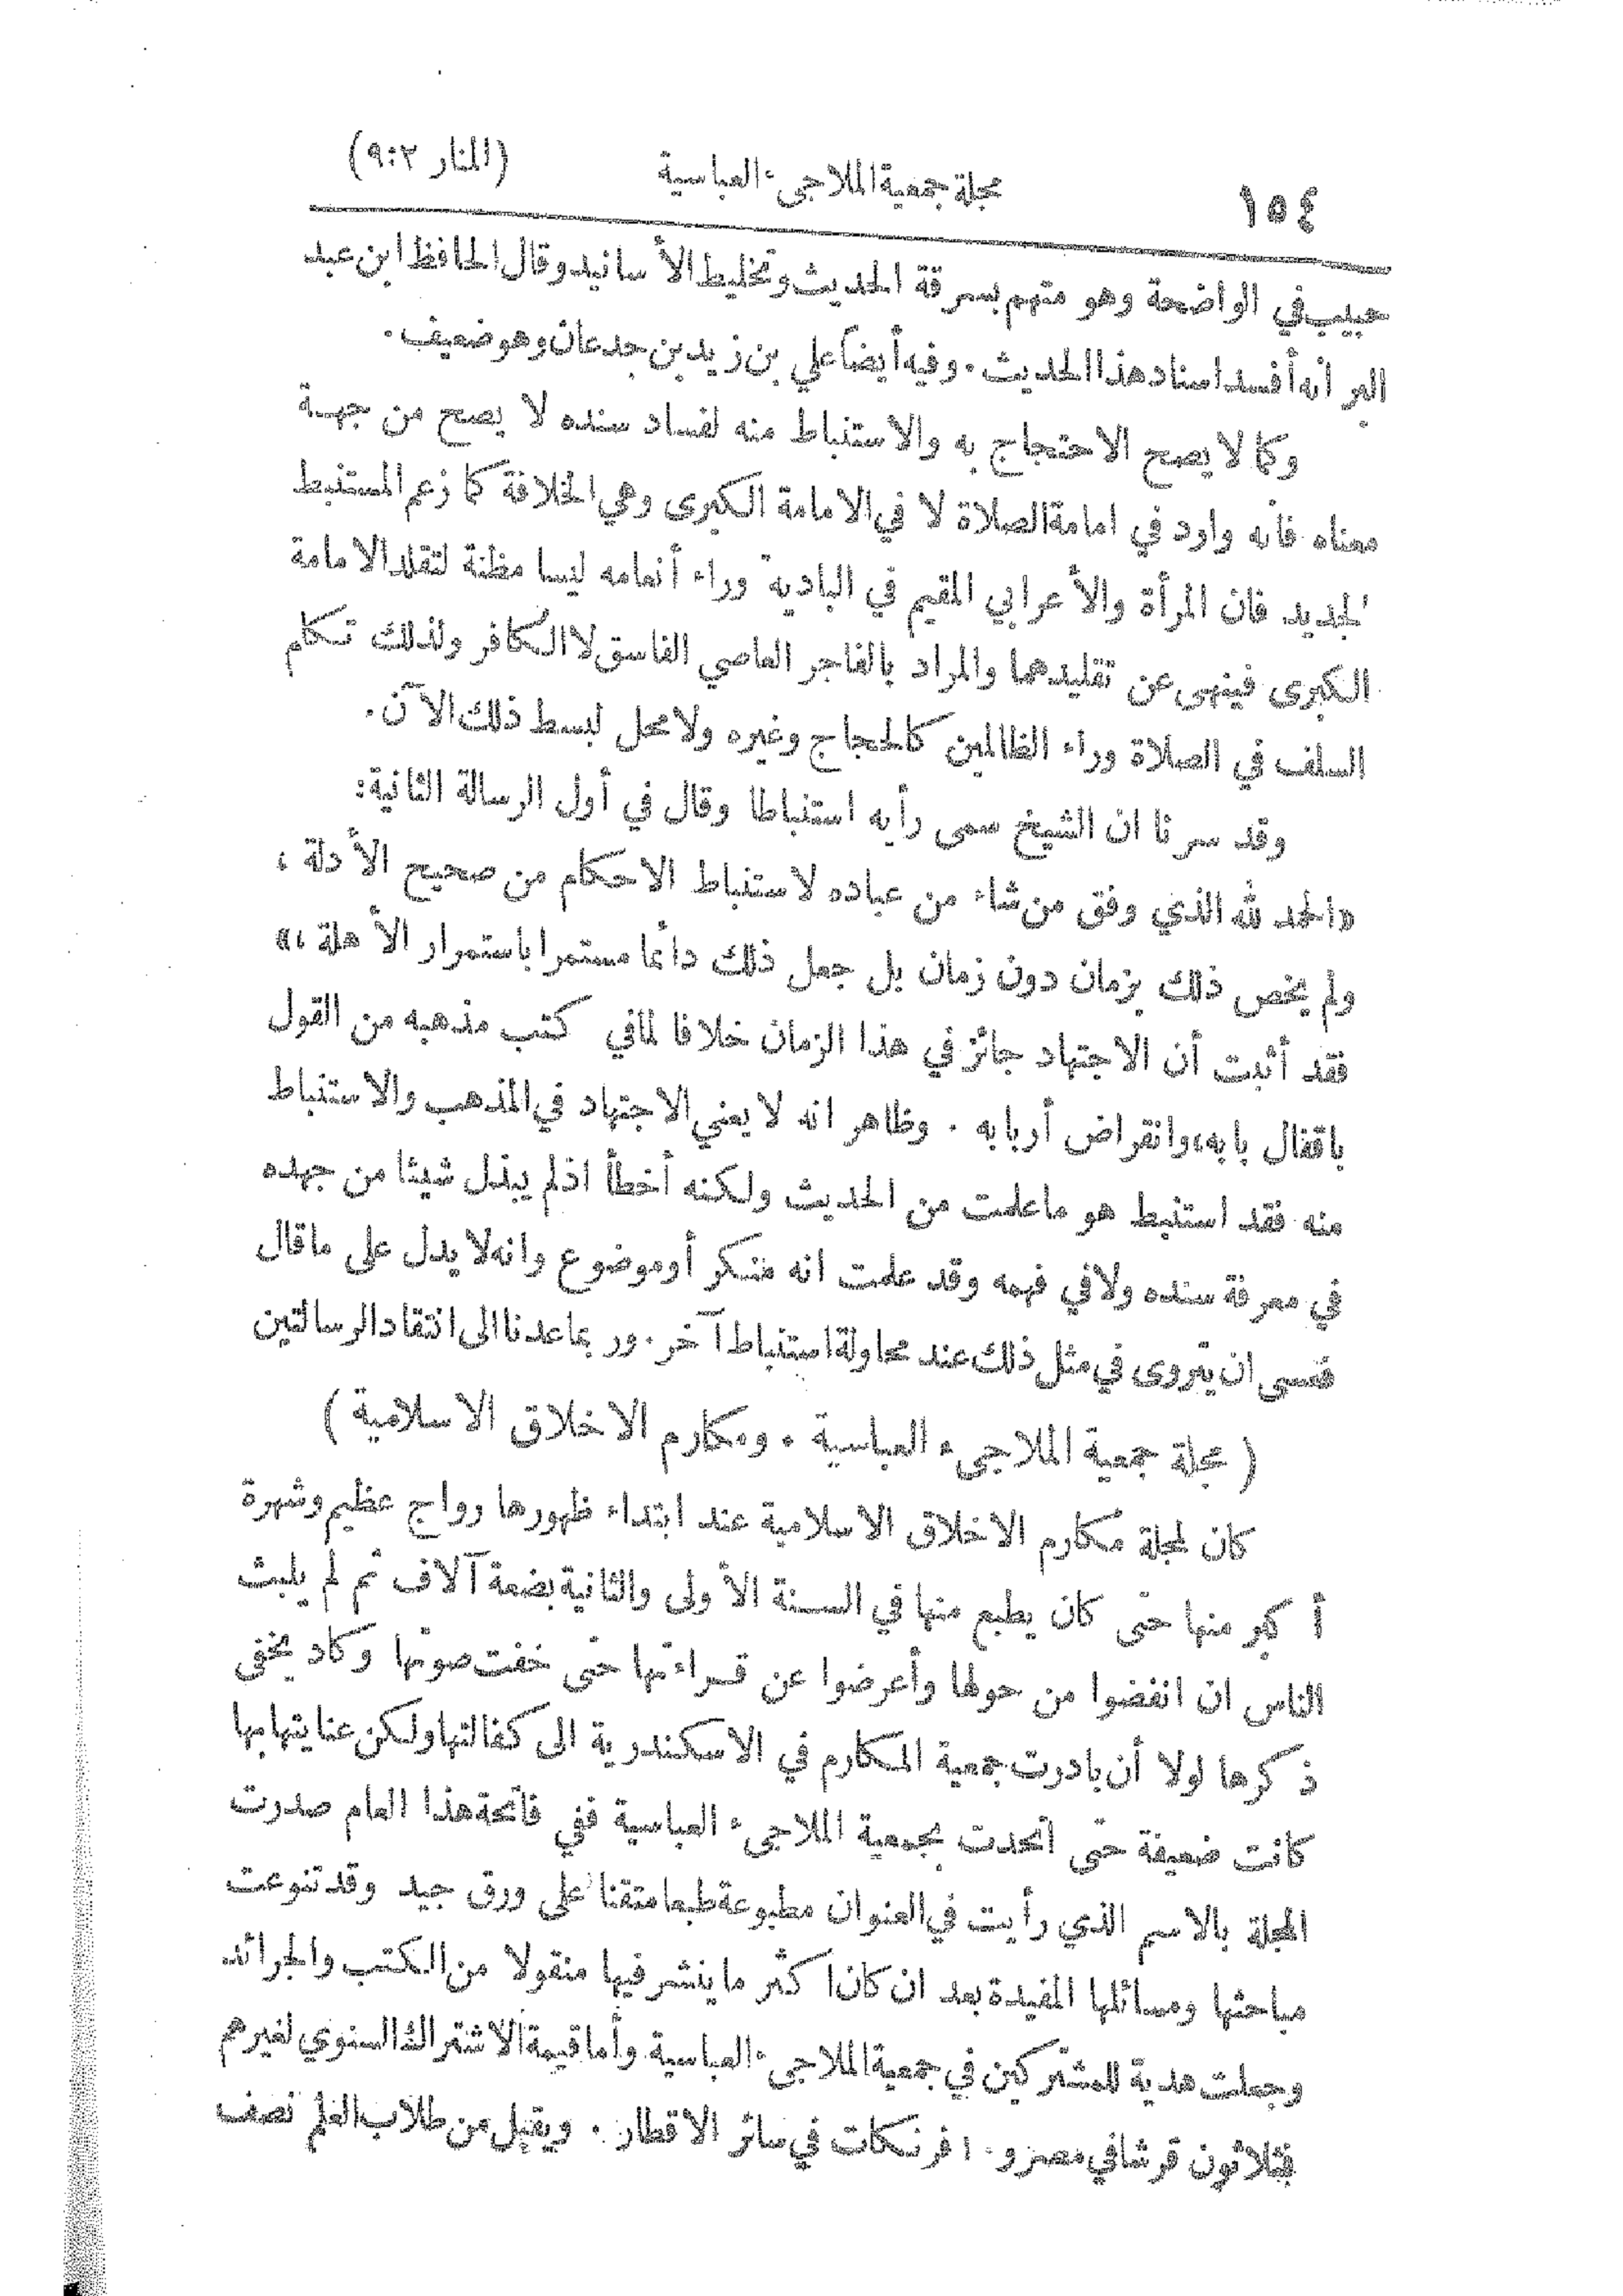 ١٥٤ مجلة جمعية الملاجىء العباسية (المنار ٩:٢)
حبيب في الواضحة وهو متهم بسرقة الحديث وتخليط الأسانيد وقال الحافظ ابن عبد
البر انه أفسد اسناد هذا الحديث. وفيه أيضاً علي بن زيد بن جدعان وهو ضعيف.
وكما لا يصح الاحتجاج به والاستنباط منه لفساد سنده لا يصح من جهة
معناه فانه وارد في امامة الصلاة لا في الامامة الكبرى وهي الخلافة كما زعم المستنبط
الجديد فان المرأة والأعرابي المقيم في البادية وراء أنعامه ليسا مظنة لتقلد الامامة
الكبرى فينهى عن تقليدهما والمراد بالفاجر العاصي الفاسق لا الكافر ولذلك تكلم
السلف في الصلاة وراء الظالمين كالحجاج وغيره ولا محل لبسط ذلك الآن.
وقد سرنا ان الشيخ سمى رأيه استنباطا وقال في أول الرسالة الثانية:
«الحمد لله الذي وفق من شاء من عباده لاستنباط الاحكام من صحيح الأدلة ،
ولم يخص ذلك بزمان دون زمان بل جعل ذلك دائما مستمرا باستمرار الأهلة ،»
فقد أثبت أن الاجتهاد جائز في هذا الزمان خلافا لما في كتب مذهبه من القول
باقفال بابه، وانقراض أربابه . وظاهر انه لا يعني الاجتهاد في المذهب والاستنباط
منه فقد استنبط هو ما علمت من الحديث ولكنه أخطأ اذ لم يبذل شيئا من جهده
في معرفة سنده ولا في فهمه وقد علمت انه منكر أو موضوع وانه لا يدل على ما قال
فعسى ان يتروى في مثل ذلك عند محاولة استنباط آخر. وربما عدنا الى انتقاد الرسالتين
( مجلة جمعية الملاجىء العباسية . ومكارم الاخلاق الاسلامية )
كان لمجلة مكارم الاخلاق الاسلامية عند ابتداء ظهورها رواج عظيم وشهرة
أكبر منها حتى كان يطبع منها في السنة الأولى والثانية بضعة آلاف ثم لم يلبث
الناس ان انفضوا من حولها وأعرضوا عن قراءتها حتى خفت صوتها وكاد يخفى
ذكرها لولا أن بادرت جمعية المكارم في الاسكندرية الى كفالتها ولكن عنايتها بها
كانت ضعيفة حتى اتحدت بجمعية الملاجىء العباسية ففي فاتحة هذا العام صدرت
المجلة بالاسم الذي رأيت في العنوان مطبوعة طبعا متقنا على ورق جيد وقد تنوعت
مباحثها ومسائلها المفيدة بعد ان كان اكثر ما ينشر فيها منقولا من الكتب والجرائد
وجعلت هدية للمشتركين في جمعية الملاجىء العباسية وأما قيمة الاشتراك السنوي لغيرهم
فثلاثون قرشا في مصر و١٠ فرنكات في سائر الاقطار . ويقبل من طلاب العلم نصف